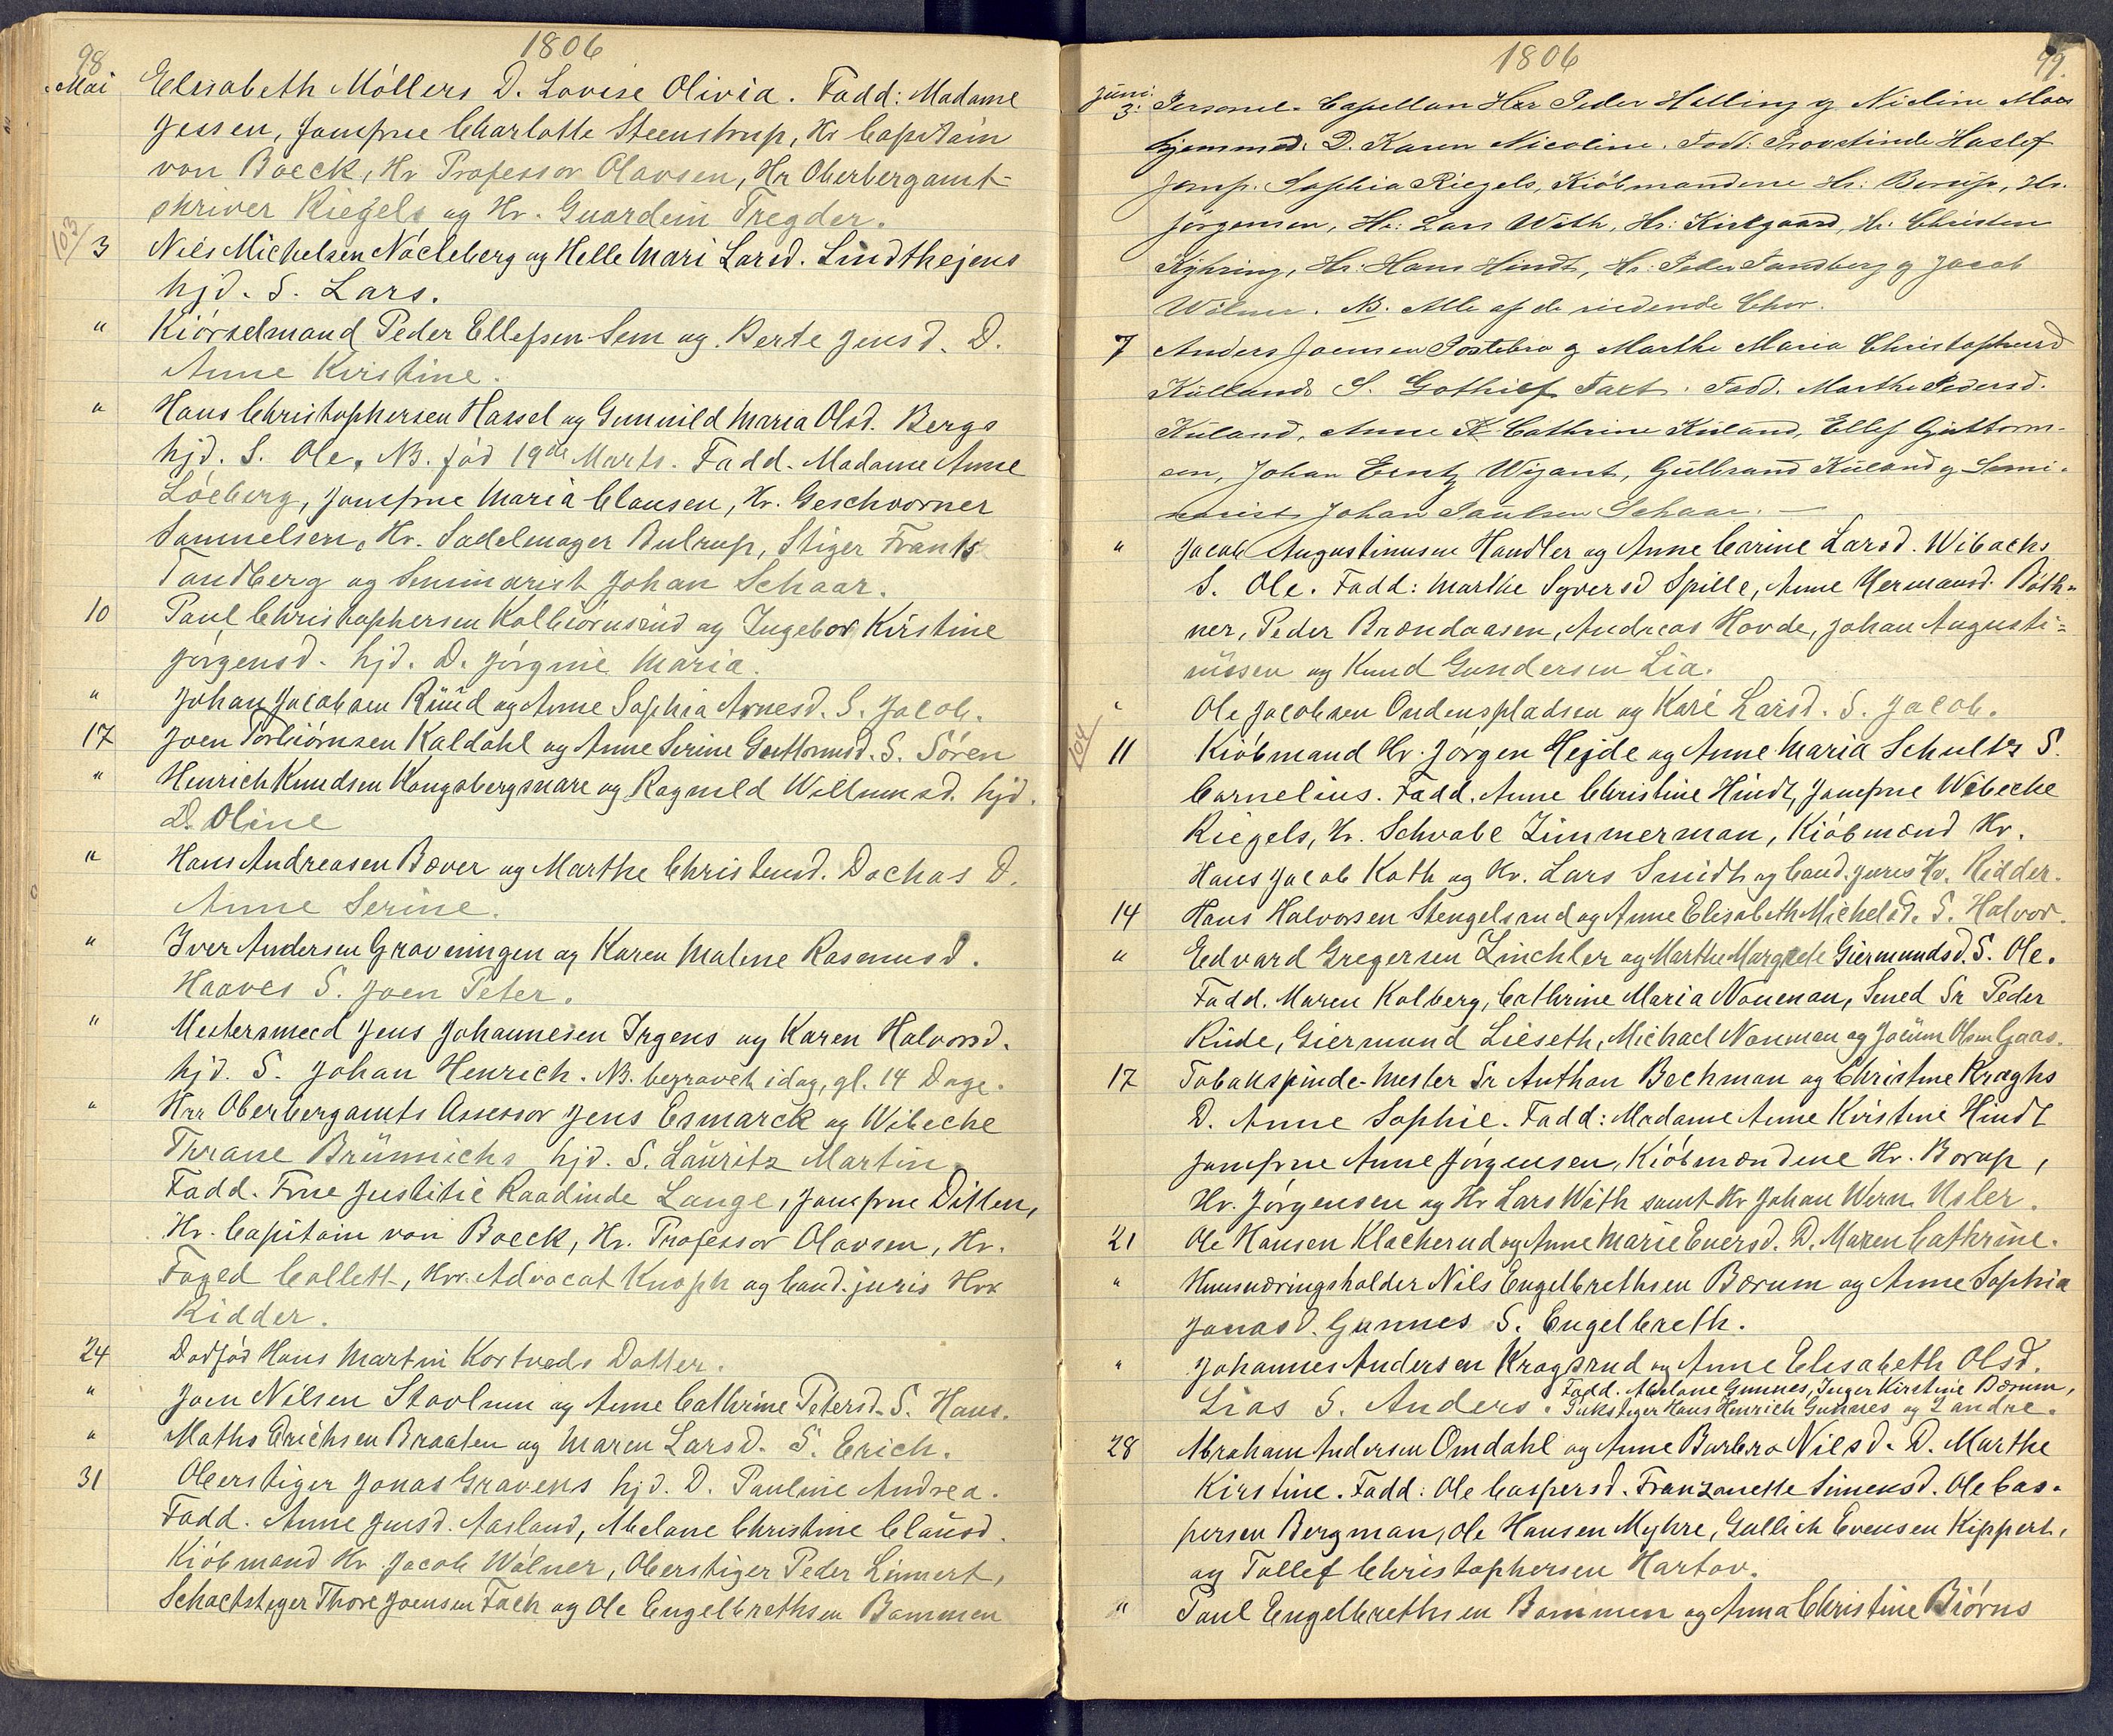 98
1806
Mai Elisabeth Möllers D. Lovise Olivia. Fadd: Madame
Jessen, Jomfrue Charlotte Steenstrup, Hr Capitain
von Boeck, Hr Professor Olavsen, Hr Oberbergamt-
skriver Riegels og Hr. Guardein Tregder.
103/ 3 Niels Michelsen Nöcleberg og Helle Mari Larsd. Lindthejens
hjd. S. Lars.
" Kiörselmand Peder Ellefsen Sem og Berte Jensd. D.
Anne Kirstine.
" Hans Christophersen Hassel og Gunnild Maria Olsd. Bergs
hjd. S. Ole. NB. föd 19de Marts. Fadd. Madame Anne
Löeberg, Jomfrue Maria Clausen, Hr. Geschworner
Samuelsen, Hr. Sadelmager Bulrup, Stiger Frants
Tandberg og Seminarist Johan Schaar.
10 Paul Christophersen Kolbiörnsrud og Ingebor Kirstine
Jörgensd. hjd. D. Jörgine Maria.
" Johan Jacobsen Rüüd og Anne Sophia Arnesd. S. Jacob.
17 Joen Torbiörnsen Kaldahl og Anne Serine Guttormsd. S. Sören
" Henrich Knudsen Kongsbergsnare og Ragnild Willumsd. hjd.
D. Oline
" Hans Andreasen Bæver og Marthe Christensd. Dochas D.
Anne Serine.
" Iver Andersen Graveningen og Karen Malene Rasmusd.
Haaves S. Joen Peter.
" Mestersmed Jens Johannesen Irgens og Karen Halvorsd.
hjd. S. Johan Henrich. NB. begravet idag, gl. 14 Dage.
" Hrr Oberbergamts Assessor Jens Esmarck og Wibeche
Thrane Brünnichs hjd. S. Lauritz Martin
Fadd. Frue Justitie Raadinde Lange, Jomfrue Ditten,
Hr. Capitain von Boeck, Hr. Professor Olavsen, Hr.
Foged Collett, Hrr. Advocat Knoph og Cand. juris Hrr
Ridder.
24 Dödföd Hans Martin Kortveds Datter.
" Joen Nilsen Stavlum og Anne Cathrine Petersd. S. Hans.
" Maths Erichsen Braaten og Maren Larsd. S. Erich.
31 Oberstiger Jonas Gravens hjd. D. Pauline Andrea.
Fadd. Anne Jensd. Aasland, Abelone Christine Clausd.
Kiöbmand Hr Jacob Wölner, Oberstiger Peder Linnert,
Schactstiger Thore Joensen Fæh og Ole Engelbrethsen Bammen
1806
99.
Juni.
3. Personel-Capellan Herr Peder Halling og Nicline Moes
hjemmed. D. Karen Nicoline. Fadd. Provstinde Haslef
Jomf. Sophia Riegels, Kiöbmændene Hr: Borup, Hr.
Jörgensen, Hr: Lars With, Hr: Kirkgaard, Hr. Christen
Kyhring, Hr: Hans Hindt, Hr. Peter Tandberg og Jacob
Wölner. NB. Alle af de ridende Chor.
7 Anders Joensen Postebro og Marthe Maria Christophersd
Külland S. Gothilf Fart. Fadd. Marthe Pedersd.
Küland, Anne K Cathrine Küland, Ellef Guttorm-
sen, Johan Erntz Wigant, Gülbrand Küland og Semi-
narist Johan Paulsen Schaar.
" Jacob Augustinusen Handler og Anne Carine Larsd. Wibachs
S. Ole. Fadd: Marthe Syversd Spille, Anne Hermansd. Böth-
ner, Peder Brændaasen, Andreas Hovde, Johan Augusti=
nüssen og Knud Gundersen Lia.
" Ole Jacobsen Oudenspladsen og Kari Larsd. S. Jacob.
104/ 11 Kiöbmand Hr. Jörgen Hejde og Anne Maria Schultz S.
Cornelius. Fadd. Anne Christine Hindt, Jomfrue Wibecke
Riegels, Hr. Schwabe Zimmerman, Kiöbmænd Hr.
Hans Jacob Koth og Hr. Lars Smidth og Cand. juris Hr. Ridder.
14 Hans Halvorsen Stengelsrud og Anne Elisabeth Michelsd. S. Halvor.
" Edvard Gregersen Zinchler og Marthe Margrete Giermundsd. S. Ole.
Fadd. Maren Kolberg, Cathrine Maria Nouman, Smed Sr Peder
Rüde, Giermund Lieseth, Michael Nouman og Jocüm Olsen Gaas.
17 Tobakspinde-Mester Sr Anthon Bechman og Christine Kraghs
D. Anne Sophie. Fadd: Madame Anne Kirstine Hindt
Jomfrue Anne Jörgensen, Kiöbmændene Hr. Borup,
Hr. Jörgensen og Hr Lars With samt Hr Johan Wern. Usler.
21 Ole Hansen Klacherud og Anne Marie Eversd. D. Maren Cathrine.
" Huusnæringsholder Nils Engelbrethsen Bærum og Anne Sophia
Jonasd. Gunnes S. Engelbreth.
" Johannes Andersen Kragsrud og Anne Elisabeth Olsd.
Lias S. Anders. Fadd. Abelone Gunnes, Inger Kirstine Bærum,
Pukstiger Hans Henrich Gunnes og 2 andre.
28 Abraham Andersen Omdahl og Anne Barbro Nilsd. D. Marthe
Kirstine. Fadd: Ole Caspersd. Franzonette Simensd. Ole Cas-
persen Bergman, Ole Hansen Myhre, Gullich Evensen Kippert,
og Tollef Christophersen Hartov.
" Paul Engelbrethsen Bammen og Anna Christine Biörns